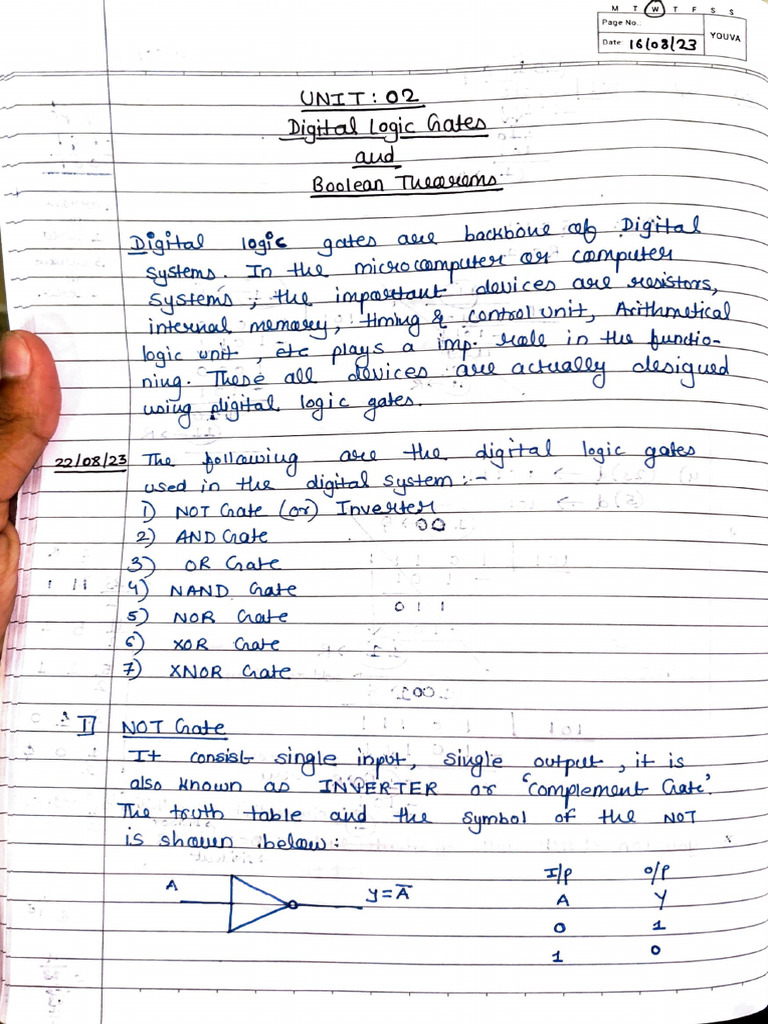 M T W T F S S
Page No.:
Date: 16/08/23
YOUVA
UNIT : 02
Digital Logic Gates
and
Boolean Theorems
Digital logic gates are backbone of Digital
systems. In the microcomputer or computer
systems, the important devices are resistors,
internal memory, timing & control unit, Arithmetical
logic unit, etc plays a imp. role in the functio-
ning. These all devices are actually designed
using digital logic gates.
22/08/23 The following are the digital logic gates
used in the digital system :-
1) NOT Gate (or) Inverter
2) AND Gate
3) OR Gate
4) NAND Gate
5) NOR Gate
6) XOR Gate
7) XNOR Gate
I NOT Gate
It consist single input, single output, it is
also known as INVERTER or 'complement Gate'.
The truth table and the symbol of the NOT
is shown below:
A Y = A̅
I/P O/P
A Y
0 1
1 0